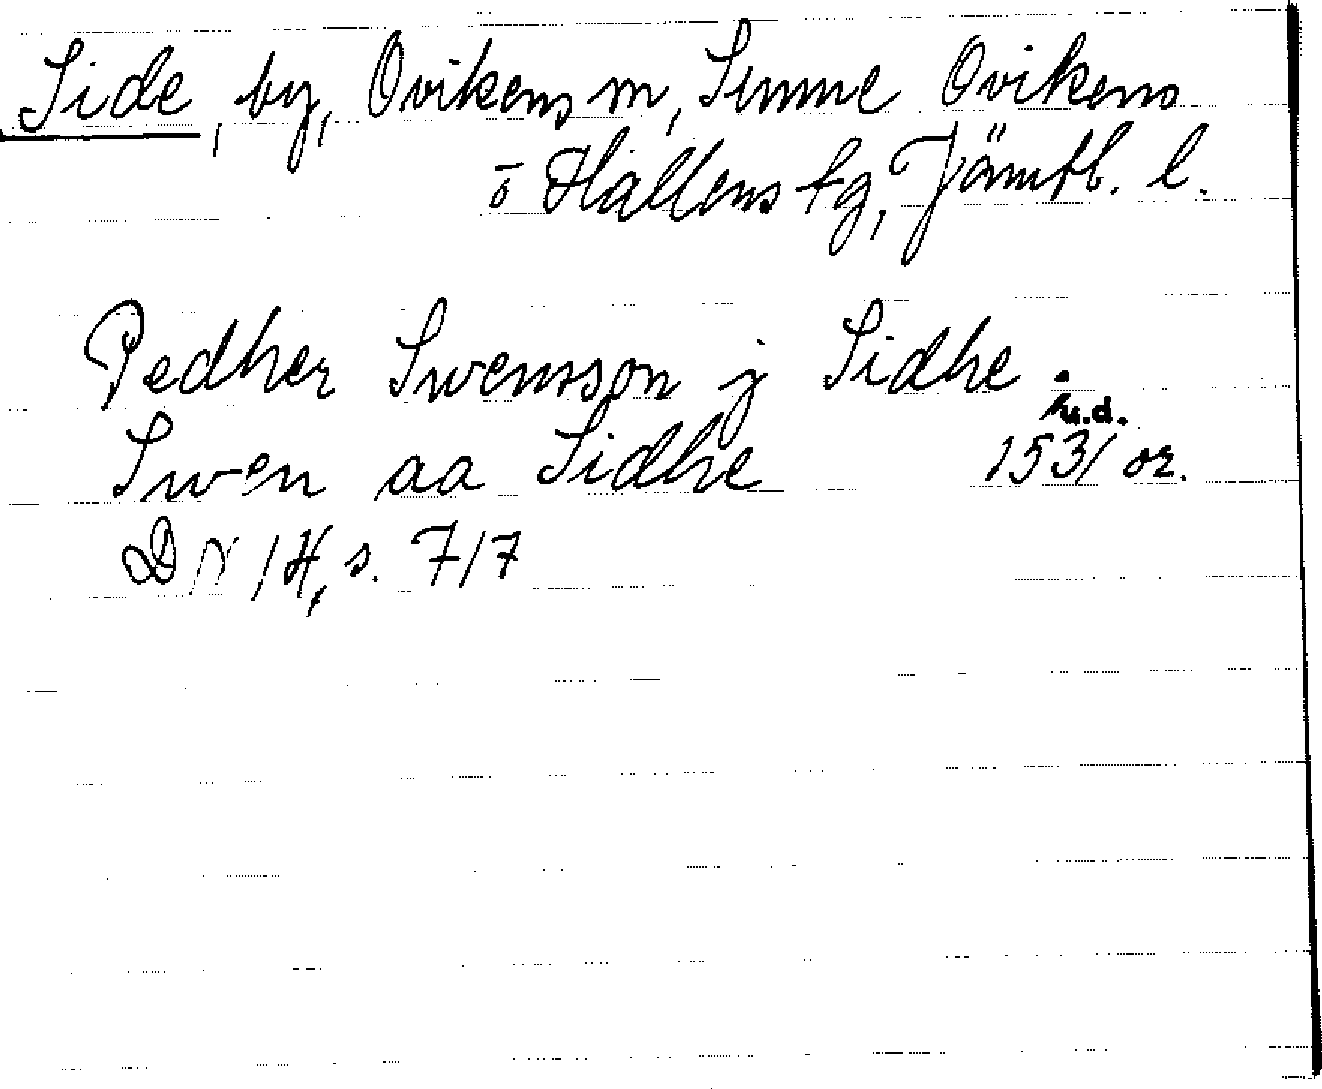 Side, by, Ovikens sn, Sunne Ovikens
o Hallens tg, Jämtl. l.
Pedher Swensson j Sidhe.
u.d.
Swen aa Sidhe 1531 or.
DN 14, s. 717